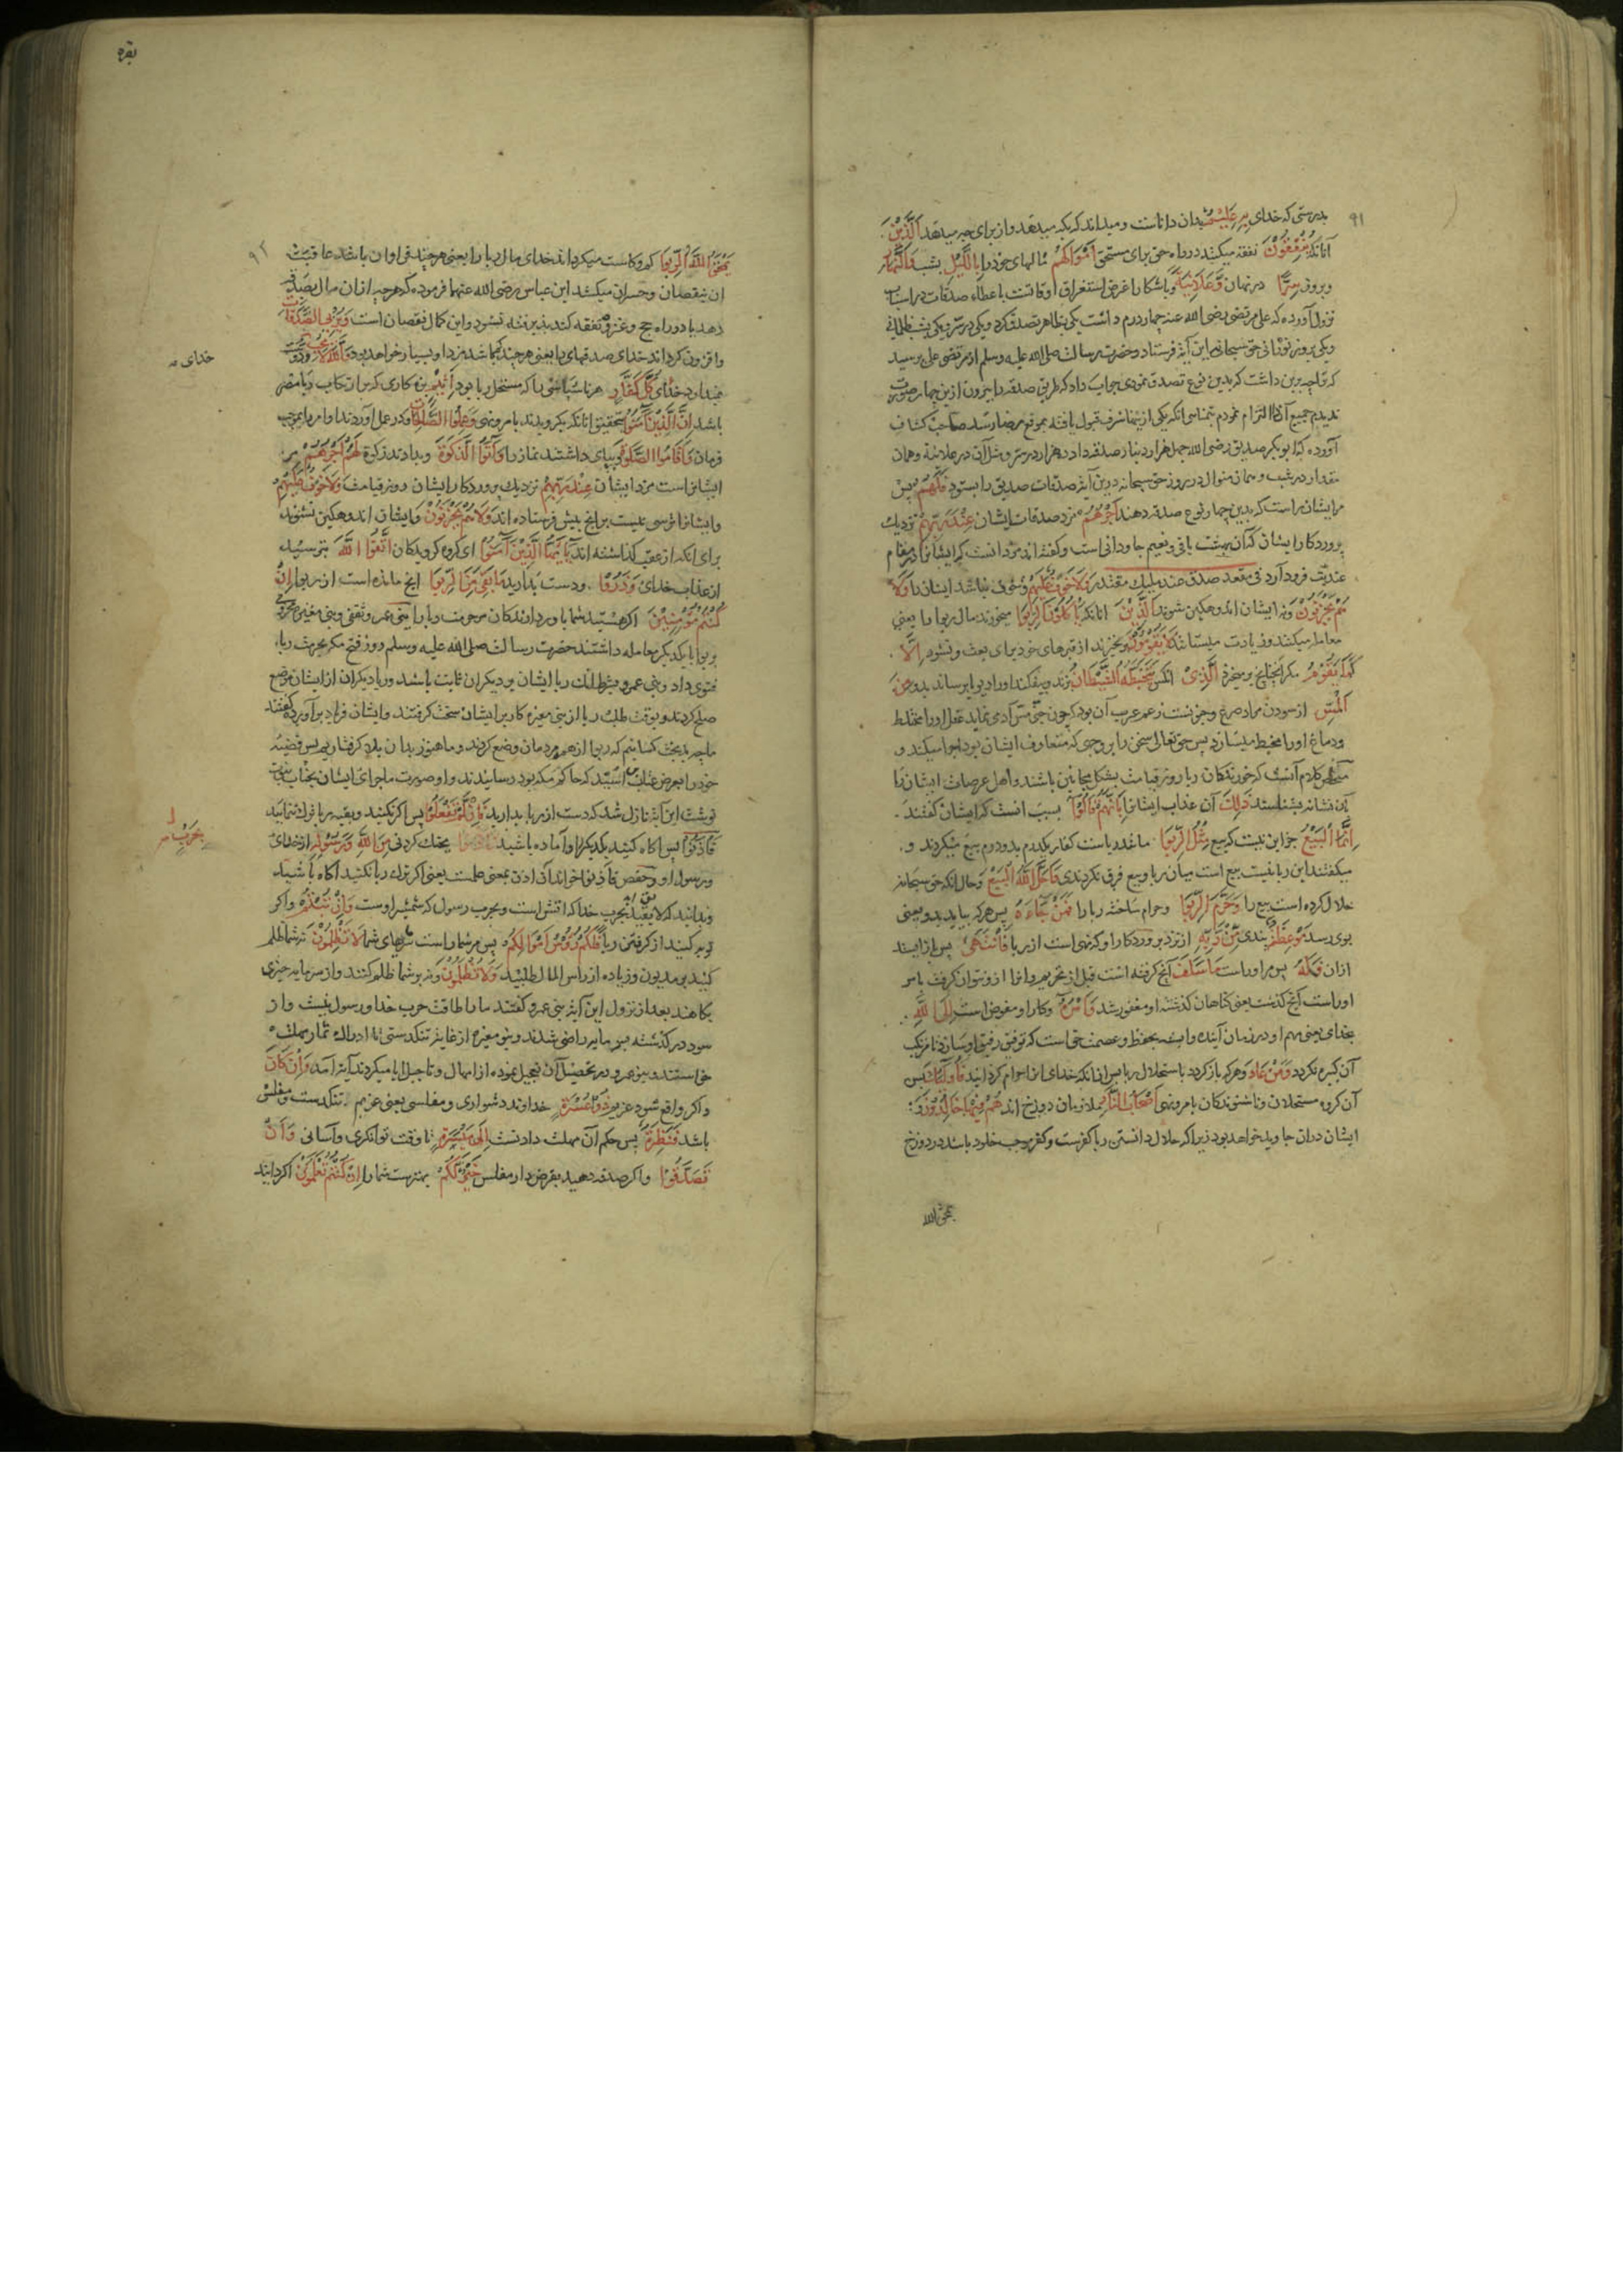 ۹۱
بدرستی که خدای بِهِ عَلِیْمٌ بدان داناست و میداند که بکه میدهد و از برای چه میدهد اَلَّذِیْنَ
آنانکه یُنْفِقُوْنَ نفقه میکنند در راه حق برای مستحق اَمْوَالَهُمْ مالهای خود را بِاللَّیْلِ بشب وَالنَّهَارِ
و بروز سِرًّا در نهان وَعَلَانِیَةً و باشکارا غرض استغراق اوقاتست باعطاء صدقات در اسباب
نزول آورده که علی مرتضی رضی الله عنه چهار درم داشت یکی بظاهر تصدق کرد و یکی در سر و یکی بشب ظلمانی
و یکی بروز نورانی حق سبحانه این آیة فرستاد و حضرت رسالت صلی الله علیه وسلم از مرتضی علی پرسید
که ترا چه برین داشت که بدین نوع تصدق نمودی جواب داد که طریق صدقه را بیرون ازین چهار صورت
ندیدم جمیع آنرا التزام نمودم بتمنای انکه یکی ازینها شرف قبول یافته بموقع رضا رسد صاحب کشاف
آورده که ابوبکر صدیق رضی الله چهل هزار دینار صدقه داد ده هزار در سر و مثل آن در علانیة و همان
مقدار در شب و بهمان منوال در روز حق سبحانه درین آیة صدقات صدیق را بستود فَلَهُمْ پس
مرایشان راست که بدین چهار نوع صدقه دهند اَجْرُهُمْ مزد صدقات ایشان عِنْدَ رَبِّهِمْ نزدیک
پروردکار ایشان که آن بهشت باقی و نعیم جاودانی است و کفته اند مزد انست که ایشانرا در مقام
عندیت فرود آرد فی مقعد صدق عند ملیک مقتدر وَلَا خَوْفٌ عَلَیْهِمْ و خوفی نباشد ایشان را وَلَا
هُمْ یَحْزَنُوْنَ و نه ایشان اندوهکین شوند اَلَّذِیْنَ انانکه یَأْکُلُوْنَ الرِّبٰوا میخورند مال ربوا را یعنی
معامله میکنند و زیادت میستانند لَا یَقُوْمُوْنَ برنخیزند از قبرهای خود برای بعث و نشور اِلَّا
کَمَا یَقُوْمُ مکر آنچنانچ برخیزد اَلَّذِیْ انکس یَتَخَبَّطُهُ الشَّیْطَانُ بزند و بیفکند او را دیو یا برساند بدو مِنَ
اَلْمَسِّ از سودن مراد صرع و جنونست زعم عرب آن بود که چون جنی مس آدمی نماید عقل او را مختلط
و دماغ او را مخبط میسازد پس حق تعالی سخن را بر وجهی که متعارف ایشان بود ادا میکند و
ملخص کلام آنست که خورندکان ربا روز قیامت بشکل مجانین باشند و اهل عرصات ایشان را
بآن نشانه بشناسند ذٰلِکَ آن عذاب ایشانرا بِاَنَّهُمْ قَالُوْا بسبب انست که ایشان کفتند
اِنَّمَا الْبَیْعُ جز این نیست که بیع مِثْلُ الرِّبٰوا مانند ربا ست کفار یکدرم بدو درم بیع میکردند و
میکفتند این ربا نیست بیع است میان ربا و بیع فرق نکردندی وَاَحَلَّ اللهُ الْبَیْعَ و حال انکه حق سبحانه
حلال کرده است بیع را وَحَرَّمَ الرِّبٰوا و حرام ساخته ربا را فَمَنْ جَاءَهُ پس هرکه بیاید بدو یعنی
بوی رسد مَوْعِظَةٌ پندی مِنْ رَبِّهِ از نزد پروردکار او که نهی است از ربا فَانْتَهٰی پس باز ایستد
ازان فَلَهُ پس مراوراست مَا سَلَفَ آنچ کرفته است قبل از تحریم و انرا ازو نتوان کرفت یا مر
اوراست آنچ کذشت یعنی کناهان کذشته او مغفور شد وَاَمْرُهُ و کار او مفوض است اِلَی اللهِ
بخدای یعنی مهم او در زمان آینده وابسته بحفظ و عصمت حق است که توفیق رفیق او سازد تا مرتکب
آن کبیره نکردد وَمَنْ عَادَ و هرکه باز کردد باستحلال ربا پس از انکه خدای انرا حرام کردانید فَاُولٰئِکَ پس
آن کروه مستحلان و ناشنوندکان بامر و نهی اَصْحَابُ النَّارِ ملازمان دوزخ اند هُمْ فِیْهَا خَالِدُوْنَ
ایشان دران جاوید خواهد بود زیرا که حلال دانستن ربا کفرست و کفر موجب خلود باشد در دوزخ
یمحق الله
بقره
۹۲
یَمْحَقُ اللهُ الرِّبٰوا کم و کاست میکرداند خدای مال ربا را یعنی هرچند فراوان باشد عاقبت
ان بنقصان و خسران میکشد ابن عباس رضی الله عنهما فرموده که هرچه ازان مال بصدقه
دهد یا در راه حج و غزو نفقه کند پذیرفته نشود و این کمال نقصان است وَیُرْبِی الصَّدَقَاتِ
و افزون کرداند خدای صدقهای را یعنی هرچند کم باشد مزد او بسیار خواهد بود وَاللهُ لَا یُحِبُّ و دوست
خدای
نمیدارد خدای کُلَّ کَفَّارٍ هر ناسپاسی را که مستحل ربا بود اَثِیْمٍ بزه کاری که بر ارتکاب ربا مصر
باشد اِنَّ الَّذِیْنَ اٰمَنُوْا بتحقیق انانکه بکرویدند بامر و نهی وَعَمِلُوا الصَّالِحَاتِ و در عمل آوردند اوامر را بموجب
فرمان وَاَقَامُوا الصَّلٰوةَ و بپای داشتند نماز را وَاٰتَوُا الزَّکٰوةَ و بدادند زکوة لَهُمْ اَجْرُهُمْ مر
ایشانراست مزد ایشان عِنْدَ رَبِّهِمْ نزدیک پروردکار ایشان روز قیامت وَلَا خَوْفٌ عَلَیْهِمْ
و ایشانرا ترسی نیست برانچ پیش فرستاده اند وَلَا هُمْ یَحْزَنُوْنَ و ایشان اندوهکین نشوند
برای انکه از عقب کذاشته اند یٰاَیُّهَا الَّذِیْنَ اٰمَنُوْا ای کروه کرویدکان اتَّقُوا اللهَ بترسید
از عذاب خدای وَذَرُوْا و دست بدارید مَا بَقِیَ مِنَ الرِّبٰوا انچ مانده است از ربوا اِنْ
کُنْتُمْ مُؤْمِنِیْنَ اکر هستید شما باور دارندکان حرمت ربا را بنی عمرو ثقفی و بنی مغیره مخزومی
بربوا با یکدیکر معامله داشتند حضرت رسالت صلی الله علیه وسلم روز فتح مکه بحرمت ربا
فتوی داد و بنی عمرو بشرط انک ربا ایشان بر دیکران ثابت باشد و ربا دیکران از ایشان موضوع
صلح کردند و بوقت طلب ربا از بنی مغیره کار بر ایشان سخت کرفتند و ایشان فریاد برآورده کفتند
ما چه بدبخت کسانیم که ربوا از همه مردمان وضع کردند و ما هنوز بدان بلا کرفتاریم پس قضیه
خود را بعرض عتاب اسید که حاکم مکه بود رسانیدند و او صورت ماجرای ایشان بجناب نبوت
نوشت این آیة نازل شد که دست از ربا بدارید فَاِنْ لَمْ تَفْعَلُوْا پس اکر نکنید و بقیه ربا ترک ننمایید
فَاْذَنُوْا پس اکاه کنید یکدیکر را و آماده باشید بجنک کردنی مِنَ اللهِ وَرَسُوْلِهِ از خدای
بِحَرْبٍ
و رسول او و حفص فأذنوا خواند آن اذن بمعنی علمست یعنی اکر ترک ربا نکنید اکاه باشید
و بدانید که لایقید بحرب خدا که اتش است و بحرب رسول که شمشیر اوست وَاِنْ تُبْتُمْ و اکر
توبه کنید از کرفتن ربا فَلَکُمْ رُءُوْسُ اَمْوَالِکُمْ پس مر شما راست سرمایهای شما لَا تَظْلِمُوْنَ نه شما ظلم
کنید بر مدیون و زیاده از راس المال طلبید وَلَا تُظْلَمُوْنَ و نه بر شما ظلم کنند و از سرمایه چیزی
بکاهند بعد از نزول این آیة بنی عمرو کفتند ما را طاقت حرب خدا و رسول نیست و از
سود در کذشته بسرمایه راضی شدند و بنو مغیره از غایة تنکدستی تا ادراک ثمار مهلت
خواستند و بنو عمرو در تحصیل آن تعجیل نموده از امهال و تاجیل ابا میکردند آیة آمد وَاِنْ کَانَ
و اکر واقع شود غریم ذُوْ عُسْرَةٍ خداوند دشواری و مفلسی یعنی غریم تنکدست و مفلس
باشد فَنَظِرَةٌ پس حکم آن مهلت دادنست اِلٰی مَیْسَرَةٍ تا وقت توانکری و آسانی وَاَنْ
تَصَدَّقُوْا و اکر صدقه دهید بقرض دار مفلس خَیْرٌ لَکُمْ بهترست شما را اِنْ کُنْتُمْ تَعْلَمُوْنَ اکر دانید